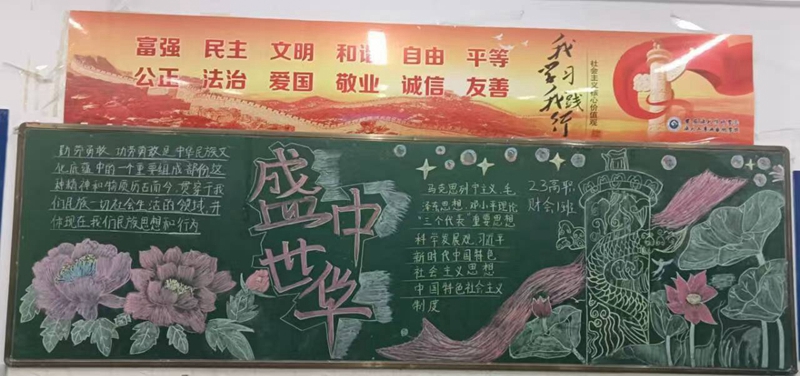 富强 民主 文明 和谐 自由 平等
公正 法治 爱国 敬业 诚信 友善
我学习我践行
社会主义核心价值观
勤劳勇敢
中华民族文
化底蕴中的一个重要组成部分这
种精神和物质历古而今 贯穿于我
们民族一切社会生活的领域,并
体现在我们民族思想和行为
盛世
中华
马克思列宁主义 毛
泽东思想 邓小平理论
“三个代表”重要思想
科学发展观 习近平
新时代中国特色
社会主义思想
中国特色社会主义
制度
23高职
财会1班